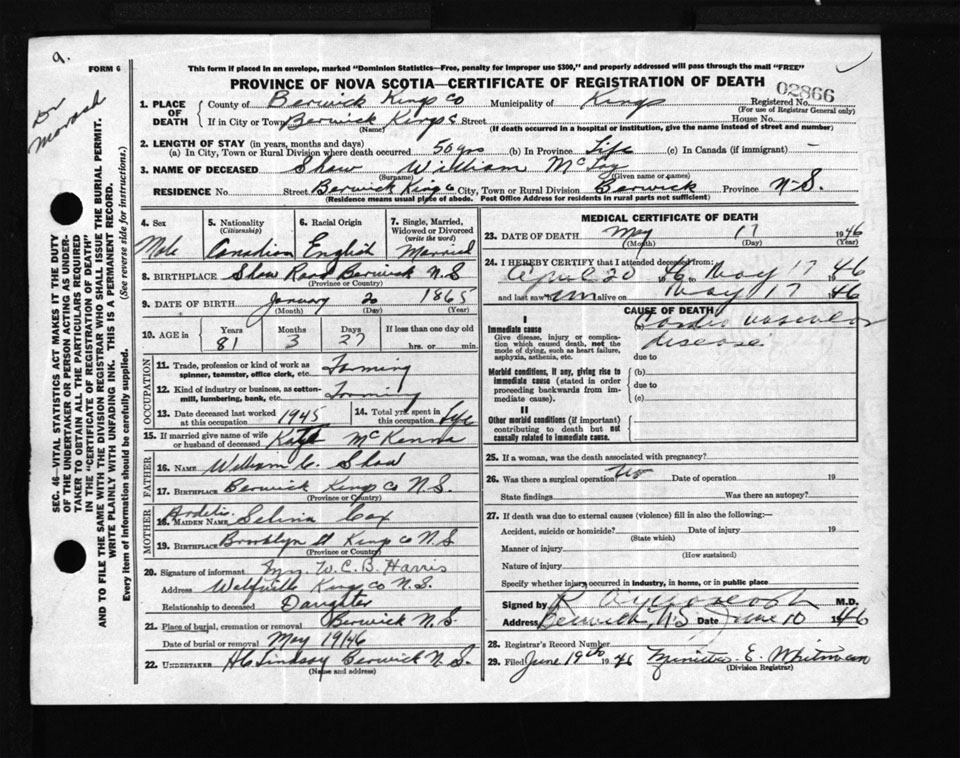 9.
FORM 6
Dr
Morash
This form if placed in an envelope, marked "Dominion Statistics—Free, penalty for improper use $300," and properly addressed will pass through the mail "FREE"
PROVINCE OF NOVA SCOTIA—CERTIFICATE OF REGISTRATION OF DEATH
02866
SEC. 46—VITAL STATISTICS ACT MAKES IT THE DUTY
OF THE UNDERTAKER OR PERSON ACTING AS UNDER-
TAKER TO OBTAIN ALL THE PARTICULARS REQUIRED
IN THE "CERTIFICATE OF REGISTRATION OF DEATH"
AND TO FILE THE SAME WITH THE DIVISION REGISTRAR WHO SHALL ISSUE THE BURIAL PERMIT.
WRITE PLAINLY WITH UNFADING INK. THIS IS A PERMANENT RECORD.
Every item of information should be carefully supplied. (See reverse side for instructions.)
1. PLACE OF DEATH
County of Berwick Kings Co Municipality of Kings Registered No.
(For use of Registrar General only)
If in City or Town Berwick Kings Street House No.
(Name) (If death occurred in a hospital or institution, give the name instead of street and number)
2. LENGTH OF STAY (in years, months and days)
(a) In City, Town or Rural Division where death occurred 50 yrs (b) In Province Life (c) In Canada (if immigrant) —
3. NAME OF DECEASED Shaw William
(Surname) (Given name or names)
RESIDENCE No. Street Berwick Kings City, Town or Rural Division Berwick Province N-S.
(Residence means usual place of abode. Post Office Address for residents in rural parts not sufficient)
4. Sex Male
5. Nationality (Citizenship) Canadian
6. Racial Origin English
7. Single, Married, Widowed or Divorced (write the word) Married
8. BIRTHPLACE Shaw Road Berwick N.S
(Province or Country)
9. DATE OF BIRTH January 20 1865
(Month) (Day) (Year)
10. AGE in Years 81 Months 3 Days 27 If less than one day old hrs. or min.
OCCUPATION
11. Trade, profession or kind of work as spinner, teamster, office clerk, etc. Farming
12. Kind of industry or business, as cotton-mill, lumbering, bank, etc. Farming
13. Date deceased last worked at this occupation 1945
14. Total yrs. spent in this occupation Life
15. If married give name of wife or husband of deceased Kate McKenna
FATHER
16. NAME William C. Shaw
17. BIRTHPLACE Berwick Kings Co N.S.
(Province or Country)
MOTHER
18. MAIDEN NAME Ardelia Selina Cox
19. BIRTHPLACE Brooklyn St Kings Co N.S
(Province or Country)
20. Signature of informant Mrs W. C. B. Harris
Address Wolfville Kings Co N.S.
Relationship to deceased Daughter
21. Place of burial, cremation or removal Berwick N.S.
Date of burial or removal May 1946
22. UNDERTAKER Lindsay Berwick N.S.
(Name and address)
MEDICAL CERTIFICATE OF DEATH
23. DATE OF DEATH May 17 1946
(Month) (Day) (Year)
24. I HEREBY CERTIFY that I attended deceased from:
April 20 1946 May 17 46
and last saw him alive on May 17 1946
CAUSE OF DEATH
I
Immediate cause
Give disease, injury or complica-
tion which caused death, not the
mode of dying, such as heart failure,
asphyxia, asthenia, etc.
(a) Cardio vascular
disease
due to
Morbid conditions, if any, giving rise to
immediate cause (stated in order
proceeding backwards from im-
mediate cause).
(b)
due to
(c)
II
Other morbid conditions (if important)
contributing to death but not
causally related to immediate cause.
25. If a woman, was the death associated with pregnancy?
26. Was there a surgical operation? No Date of operation 19
State findings Was there an autopsy?
27. If death was due to external causes (violence) fill in also the following:—
Accident, suicide or homicide? Date of injury 19
(State which)
Manner of injury
(How sustained)
Nature of injury
Specify whether injury occurred in industry, in home, or in public place
Signed by M.D.
Address Berwick, N.S Date June 10 1946
28. Registrar's Record Number
29. Filed June 19th 1946 E. Whitman
(Division Registrar)